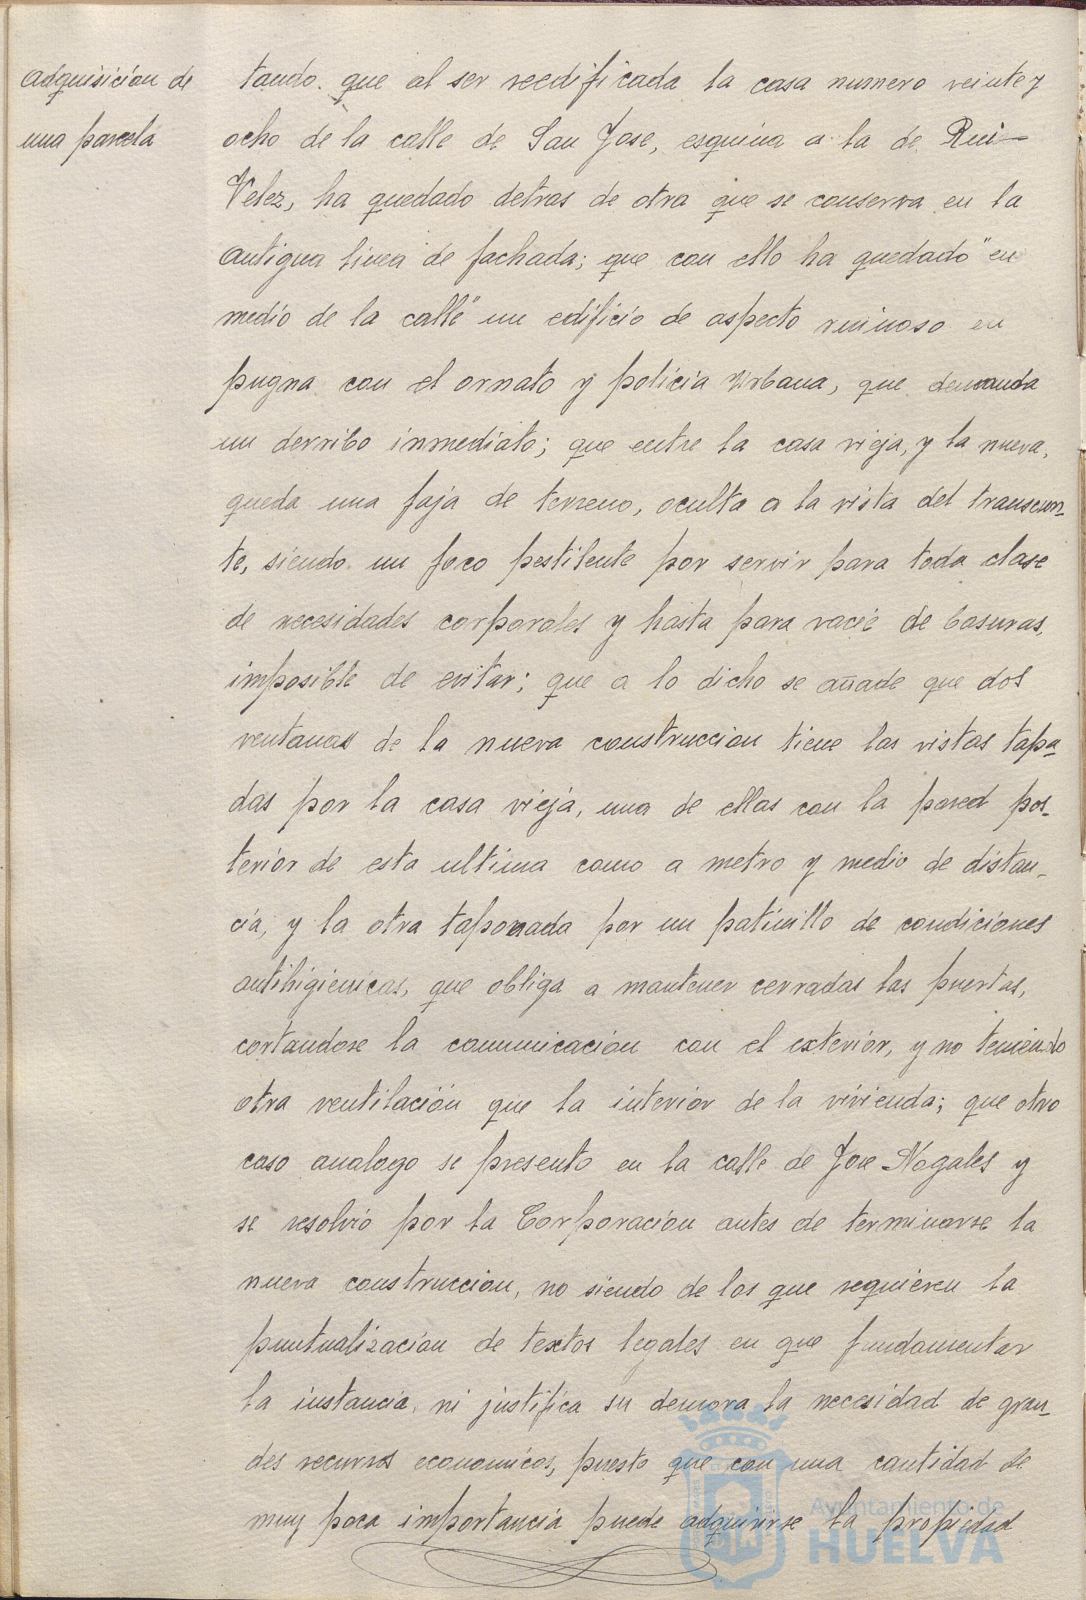 adquisición de
una parcela
tando. que al ser reedificada la casa numero veinte y
ocho de la calle de San Jose, esquina a la de Rui-
Velez, ha quedado detras de otra que se conserva en la
antigua linea de fachada; que con ello ha quedado "en
medio de la calle" un edificio de aspecto ruinoso en
pugna con el ornato y policia Urbana, que demanda
un derribo inmediato; que entre la casa vieja, y la nueva,
queda una faja de terreno, oculta a la vista del transeun-
te, siendo un foco pestilente por servir para toda clase
de necesidades corporales y hasta para vacie de basuras,
imposible de evitar; que a lo dicho se añade que dos
ventanas de la nueva construccion tiene las vistas tapa-
das por la casa vieja, una de ellas con la pared pos-
terior de esta ultima como a metro y medio de distan-
cia, y la otra taponada por un patinillo de condiciones
antihigienicas, que obliga a mantener cerradas las puertas,
cortandose la comunicación con el exterior, y no teniendo
otra ventilación que la interior de la vivienda; que otro
caso analogo se presento en la calle de Jose Nogales y
se resolvió por la Corporación antes de terminarse la
nueva construccion, no siendo de los que requieren la
puntualización de textos legales en que fundamentar
la instancia, ni justifica su demora la necesidad de gran-
des recursos economicos, puesto que con una cantidad de
muy poca importancia puede adquirirse la propiedad
Ayuntamiento de
HUELVA